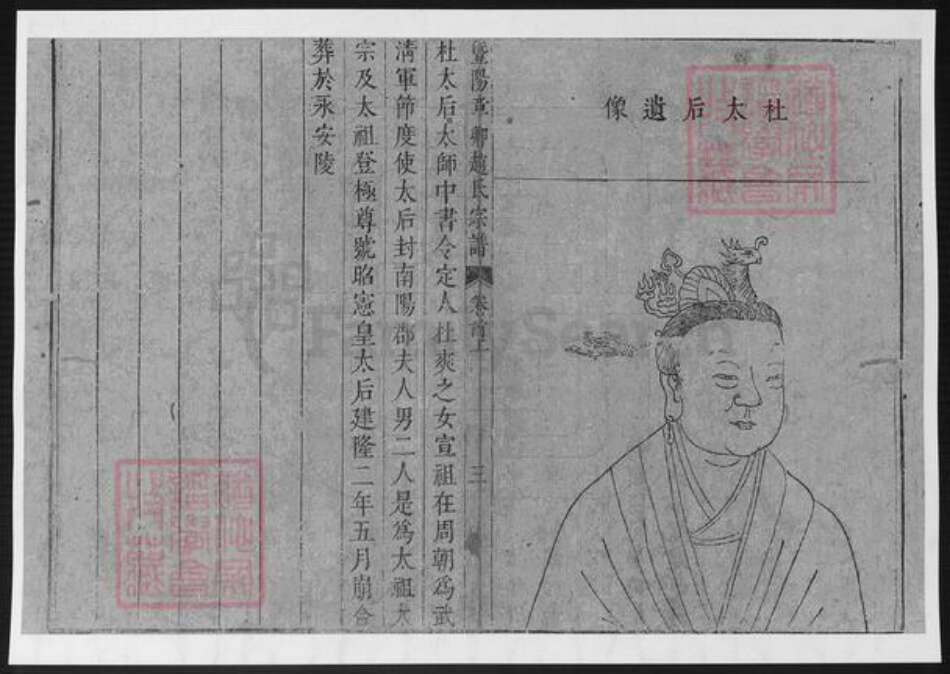 杜太后遺像
暨陽章卿趙氏宗譜 卷首上 三
杜太后太師中書令定人杜爽之女宣祖在周朝為武
清軍節度使太后封南陽郡夫人男二人是為太祖太
宗及太祖登極尊號昭憲皇太后建隆二年五月崩合
葬於永安陵
FamilySearch